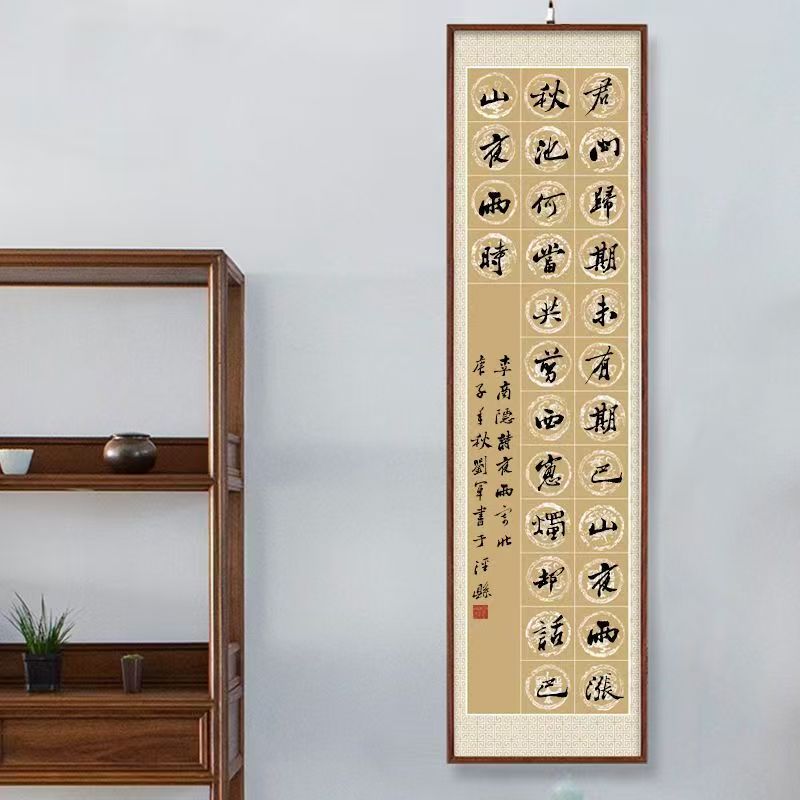 君問歸期未有期巴山夜雨漲
秋池何當共剪西窗燭却話巴
山夜雨時
李商隱詩夜雨寄北
庚子年秋劉軍書于涇縣